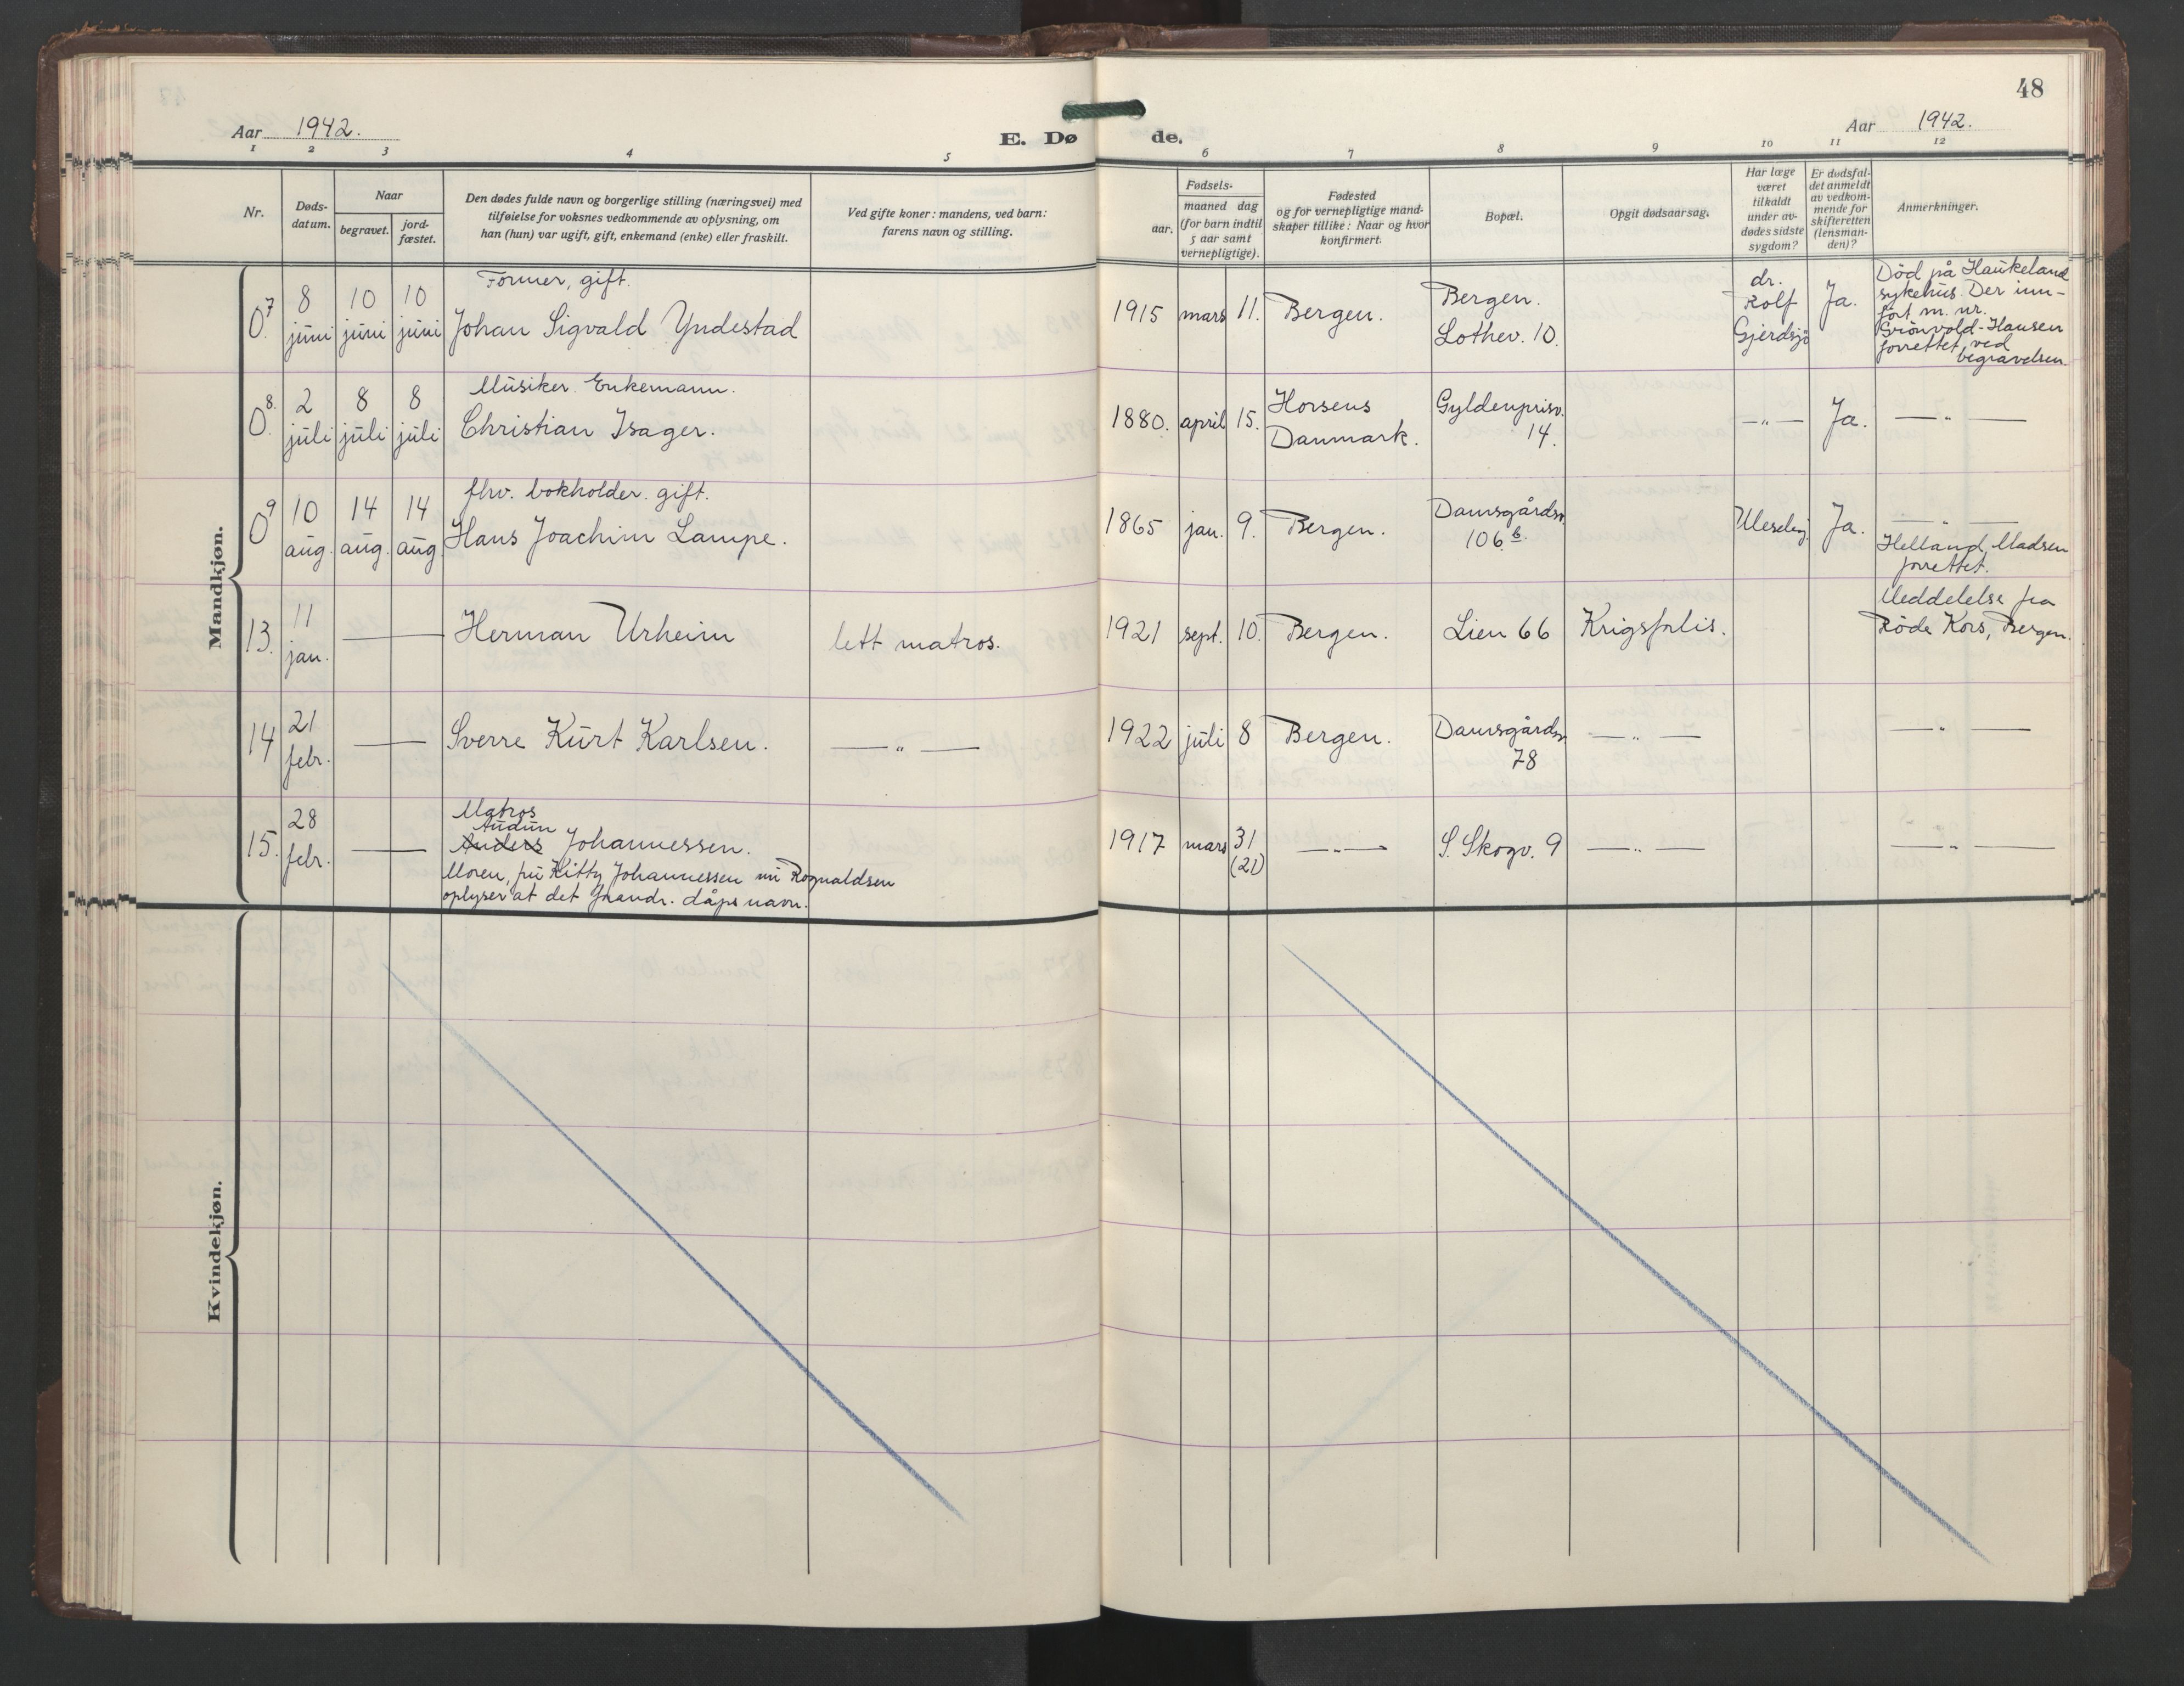 48
Aar 1942.
E. Døde.
Aar 1942.
1 2 3 4 5 6 7 8 9 10 11 12
Nr.
Døds-
datum.
Naar
begravet.
jord-
fæstet.
Den dødes fulde navn og borgerlige stilling (næringsvei) med
tilføielse for voksnes vedkommende av oplysning, om
han (hun) var ugift, gift, enkemand (enke) eller fraskilt.
Ved gifte koner: mandens, ved barn:
farens navn og stilling.
Fødsels-
aar.
maaned dag
(for barn indtil
5 aar samt
vernepligtige).
Fødested
og for vernepligtige mand-
skaper tillike: Naar og hvor
konfirmert.
Bopæl.
Opgit dødsaarsag.
Har læge
været
tilkaldt
under av-
dødes sidste
sygdom?
Er dødsfal-
det anmeldt
av vedkom-
mende for
skifteretten
(lensman-
den)?
Anmerkninger.
Mandkjøn.
0 7
8 juni
10 juni
10 juni
Former, gift.
Johan Sigvald Yndestad
1915 mars 11.
Bergen.
Bergen.
Lothev. 10.
dr.
Rolf
Gjerdsjø
Ja.
Død på Haukeland
sykehus. Der inn-
ført m. nr.
Grönvold-Hansen
forrettet ved
begravelsen.
0 8.
2 juli
8 juli
8 juli
Musiker. Enkemann.
Christian Isager.
1880. april 15.
Horsens
Danmark.
Gyldenprisv.
14.
—"—
Ja.
—"—
0 9
10 aug.
14 aug.
14 aug.
fhv. bokholder. gift.
Hans Joachim Lampe.
1865 jan. 9.
Bergen.
Damsgårdsv.
106 b.
Ja.
—"—
Helland, Madsen
forrettet.
13.
11 jan.
—
Herman Urheim
lett matros.
1921 sept. 10.
Bergen.
Lien 66
Krigsforlis.
Meddelelse fra
Röde Kors, Bergen.
14
21 febr.
—
Sverre Kurt Karlsen.
—"—
1922 juli 8
Bergen.
Damsgårdsv.
78
—"—
—"—
15.
28 febr.
—
Matros
Audun
Anders Johannessen.
Moren, fru Kitty Johannessen nu Rognaldsen
oplyser at det forandr. dåpsnavn.
1917 mars 31
(21)
—"—
S. Skogv. 9
—"—
—"—
Kvindekjøn.